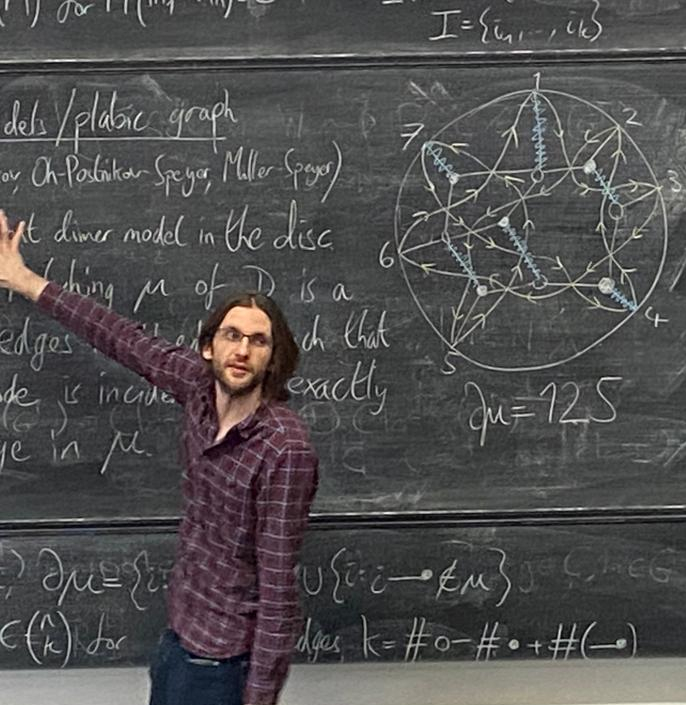 for
I={i₁,..., iₖ}
dels/plabic graph
ov, Oh-Postnikov-Speyer, Muller-Speyer)
t dimer model in the disc
ching μ of D is a
edges ch that
de is incide exactly
ge in μ.
1
2
3
4
5
6
7
∂μ=125
∂μ={i: ∪{i:i—•∉μ}
∈(ⁿₖ) for dges, k=#∘-#•+#(—•)